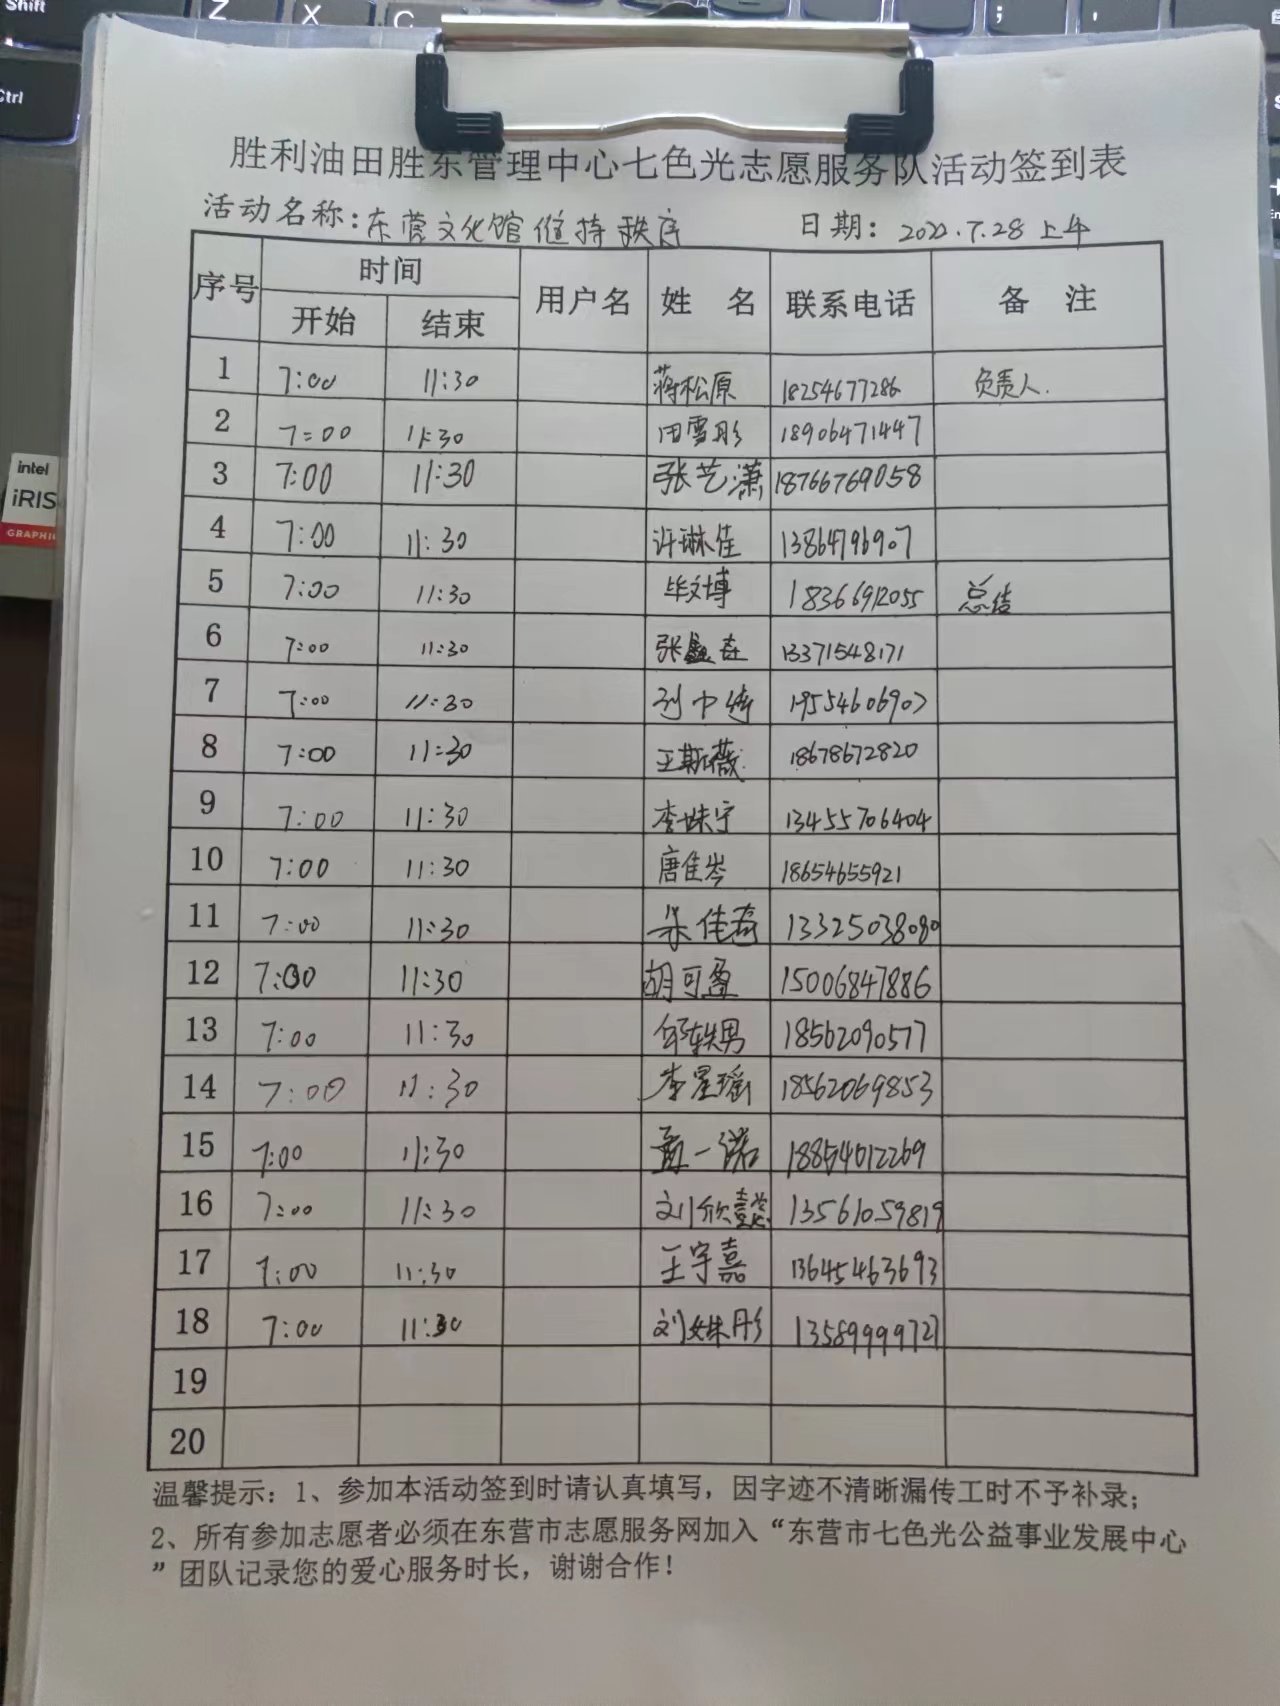 Shift
Z X C ; '
Ctrl
intel
iRIS
GRAPHI
胜利油田胜东管理中心七色光志愿服务队活动签到表
活动名称：东营文化馆维持秩序 日期：2022.7.28上午
序号 时间 用户名 姓 名 联系电话 备 注
开始 结束
1 7:00 11:30 蒋松原 18254677286 负责人.
2 7:00 11:30 田雪彤 18906471447
3 7:00 11:30 张艺潇 18766769058
4 7:00 11:30 许琳佳 13864796907
5 7:00 11:30 毕文博 18366912055 总结
6 7:00 11:30 13371548171
7 7:00 11:30 19554606907
8 7:00 11:30 王斯薇 18678672820
9 7:00 11:30 李姝宁 13455706404
10 7:00 11:30 唐佳岑 18654655921
11 7:00 11:30 13325038080
12 7:00 11:30 胡可盈 15006847886
13 7:00 11:30 邹轶男 18562090577
14 7:00 11:30 李星瑶 18562069853
15 7:00 11:30 18854612269
16 7:00 11:30 刘欣懿 13561059819
17 7:00 11:30 王宇嘉 13645463693
18 7:00 11:30 刘姝彤 13589999727
19
20
温馨提示：1、参加本活动签到时请认真填写，因字迹不清晰漏传工时不予补录；
2、所有参加志愿者必须在东营市志愿服务网加入“东营市七色光公益事业发展中心
”团队记录您的爱心服务时长，谢谢合作！